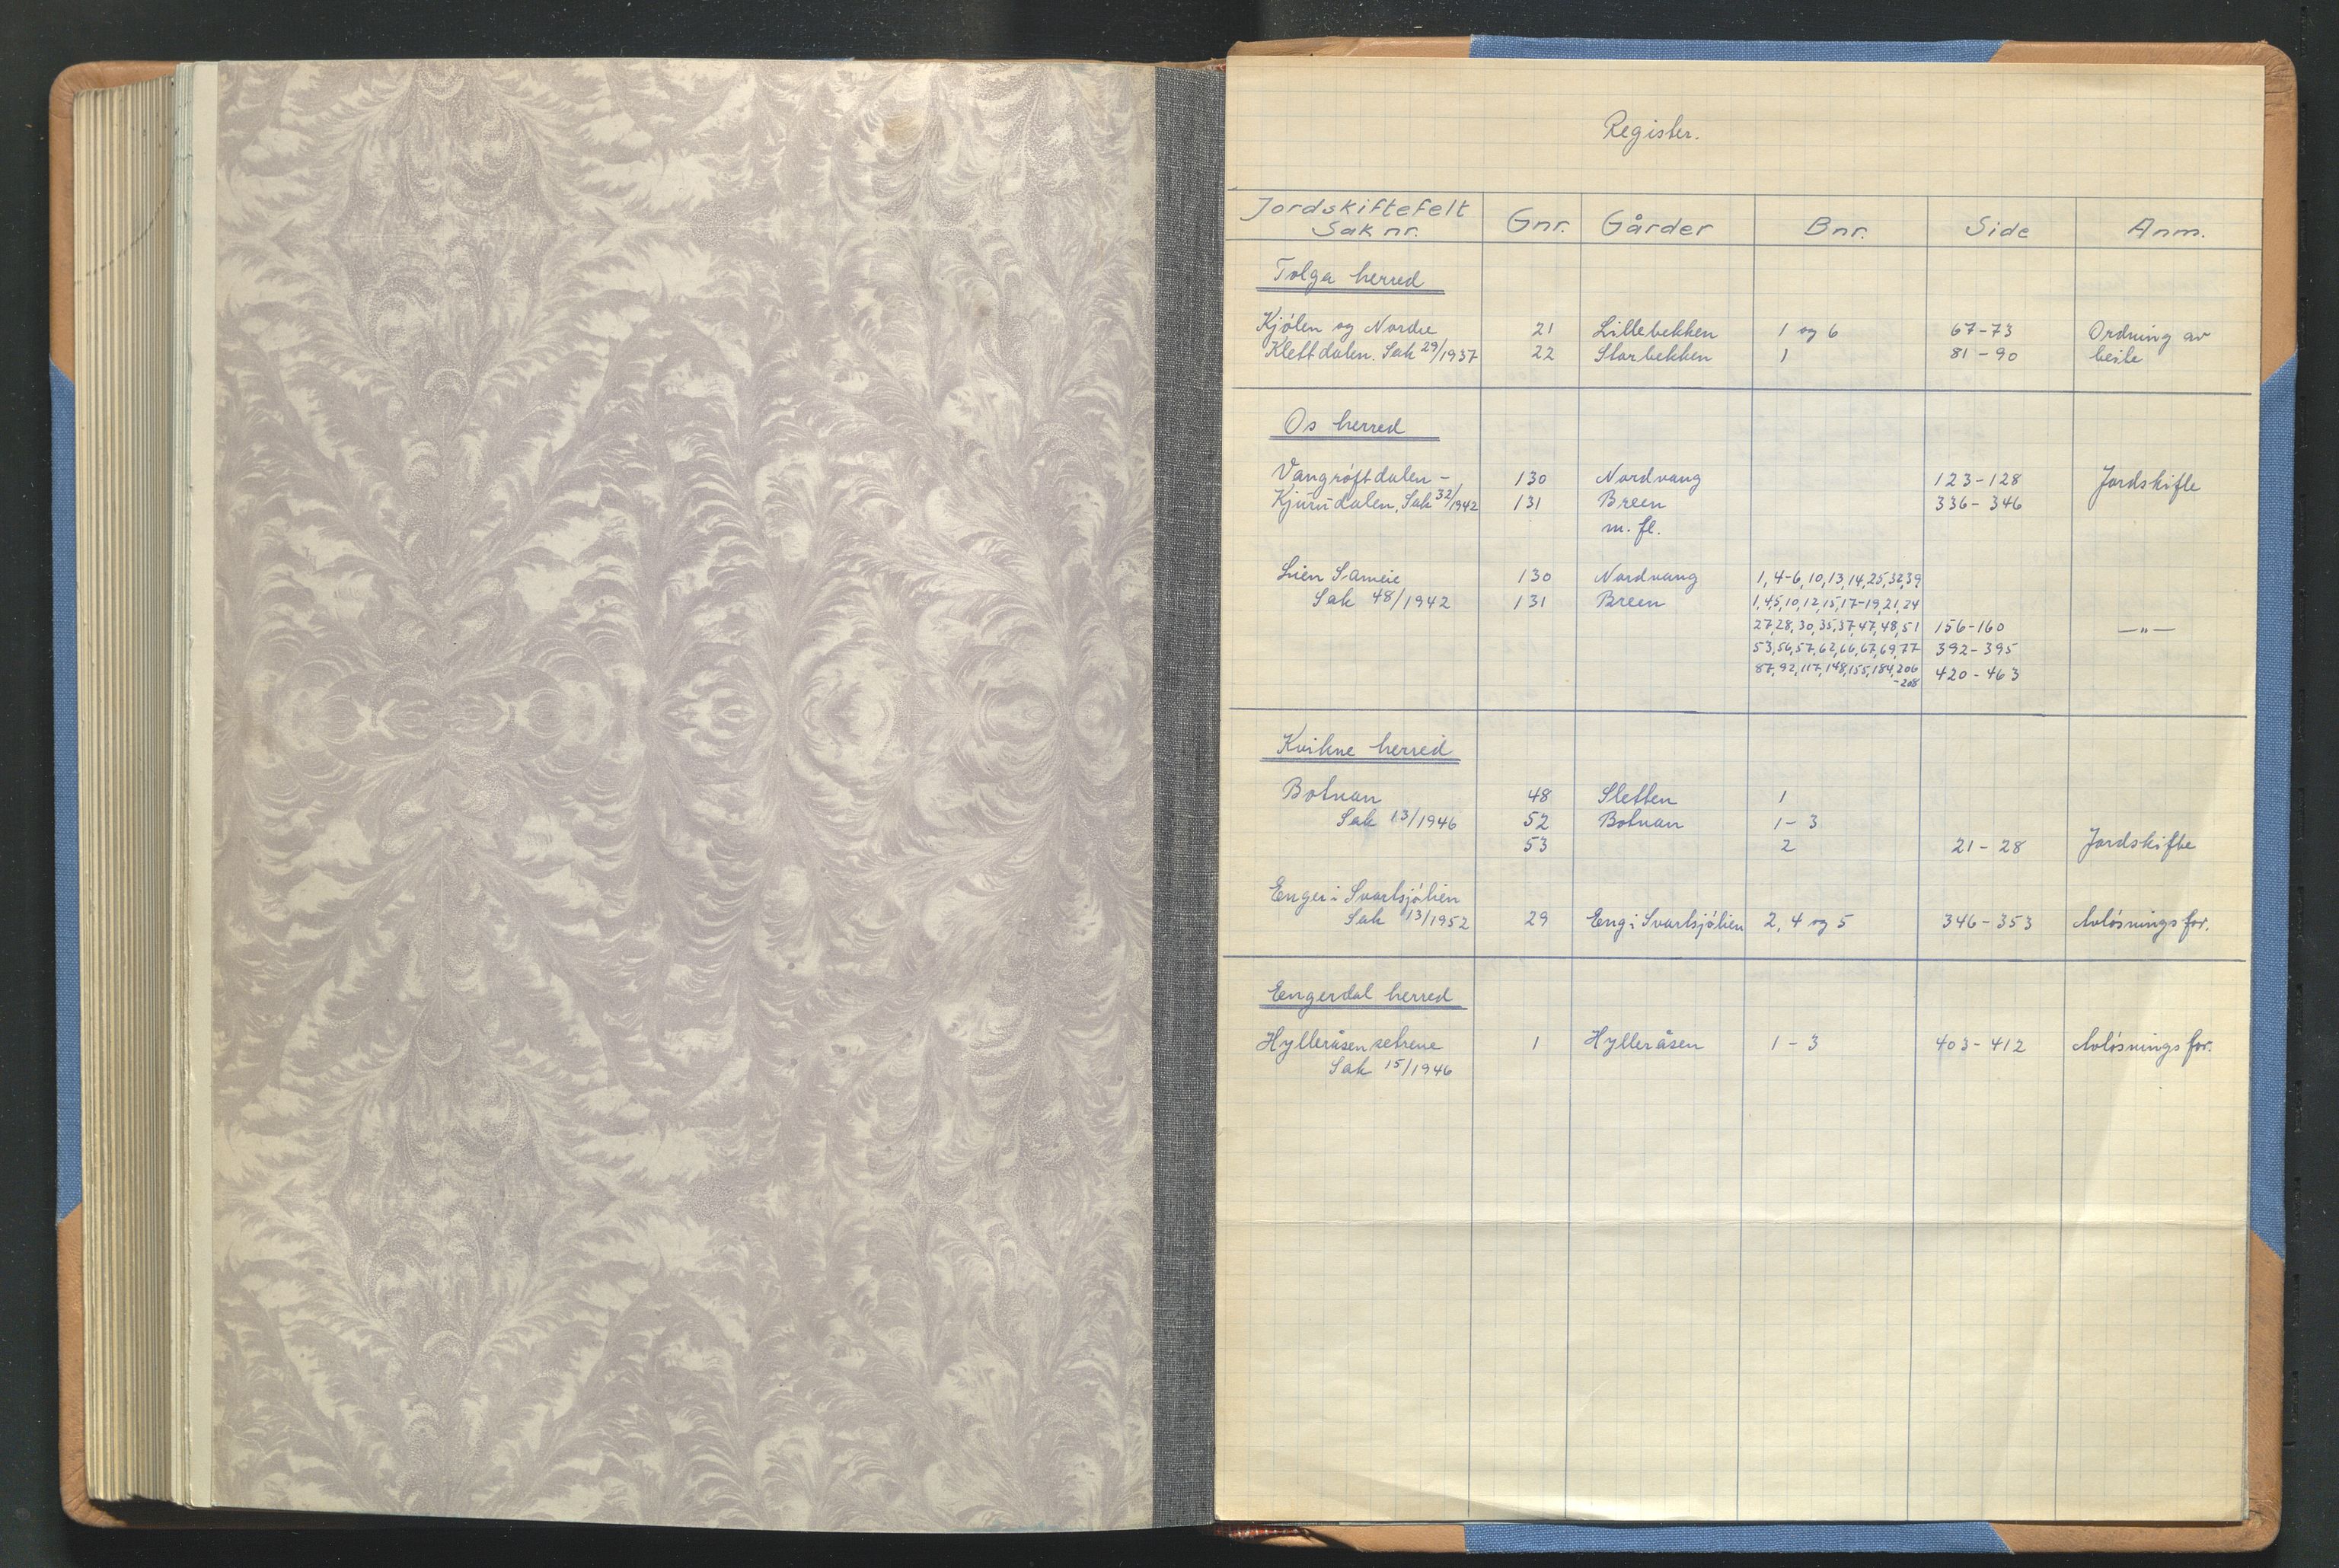 Register.
Jordskiftefelt Sak nr. | Gnr. | Gårder | Bnr. | Side | Anm.
Tolga herred
Kjølen og Nordre | 21 | Lillebekken | 1 og 6 | 67-73 | Ordning av
Klettdalen. Sak 29/1937 | 22 | Storbekken | 1 | 81-90 | beite
Os herred
Vangrøftdalen- | 130 | Nordvang | 123-128 | Jordskifte
Kjurudalen, Sak 32/1942 | 131 | Breen | 336-346
m. fl.
Lien Sameie | 130 | Nordvang | 1, 4-6, 10, 13, 14, 25, 32, 39
Sak 48/1942 | 131 | Breen | 1, 4, 5, 10, 12, 15, 17-19, 21, 24
27, 28, 30, 35, 37, 47, 48, 51 | 156-160 | —"—
53, 56, 57, 62, 66, 67, 69, 77 | 392-395
87, 92, 117, 148, 155, 184, 206 | 420-463
-208
Kvikne herred
Botnan | 48 | Sletten | 1
Sak 13/1946 | 52 | Botnan | 1-3
53 | 2 | 21-28 | Jordskifte
Enger i Svartsjølien
Sak 13/1952 | 29 | Eng i Svartsjølien | 2, 4 og 5 | 346-353 | Avløsningsfor.
Engerdal herred
Hylleråsen setrene | 1 | Hylleråsen | 1-3 | 403-412 | Avløsningsfor.
Sak 15/1946